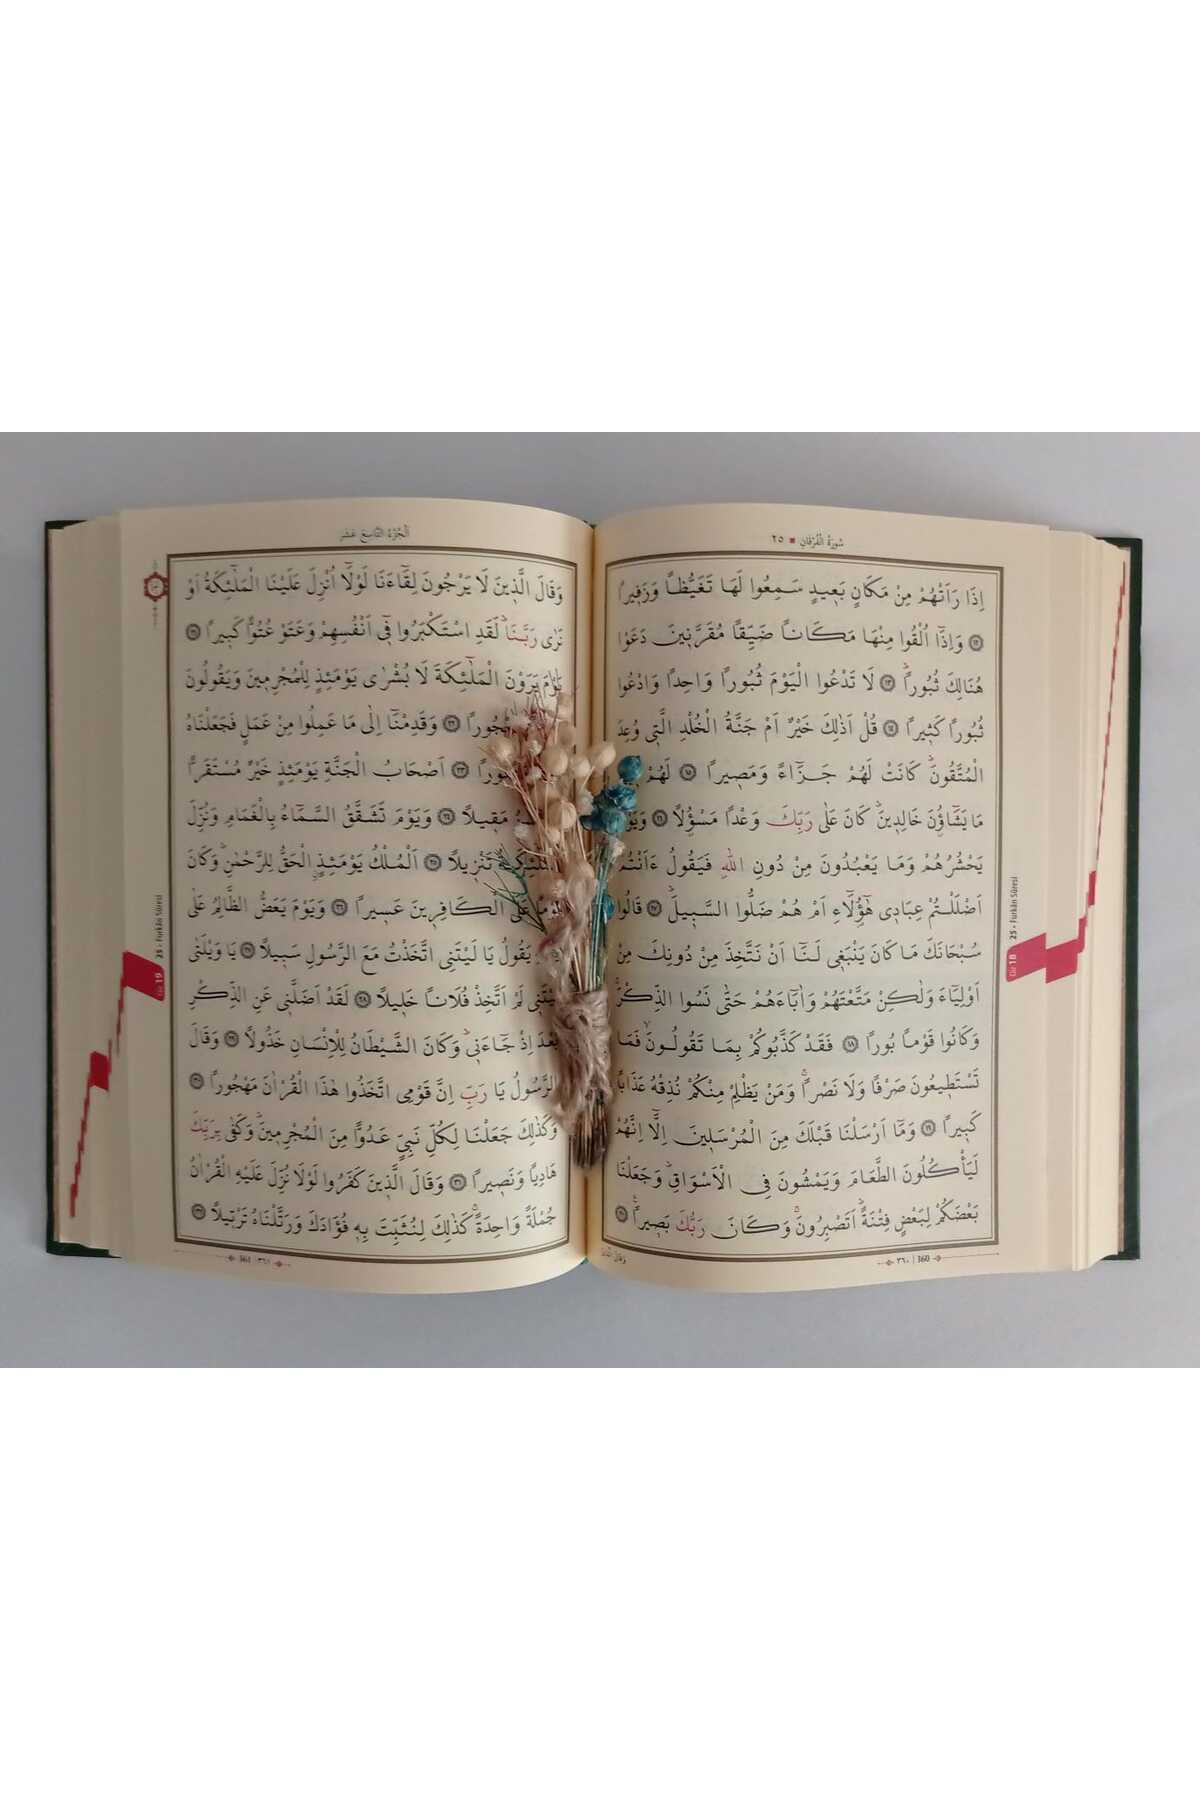 سُورَةُ الْفُرْقَانِ ٢٥
اِذَا رَاَتْهُمْ مِنْ مَكَانٍ بَعٖيدٍ سَمِعُوا لَهَا تَغَيُّظًا وَزَفٖيرًا
﴿١٢﴾ وَاِذَٓا اُلْقُوا مِنْهَا مَكَانًا ضَيِّقًا مُقَرَّنٖينَ دَعَوْا
هُنَالِكَ ثُبُورًاؕ ﴿١٣﴾ لَا تَدْعُوا الْيَوْمَ ثُبُورًا وَاحِدًا وَادْعُوا
ثُبُورًا كَثٖيرًا ﴿١٤﴾ قُلْ اَذٰلِكَ خَيْرٌ اَمْ جَنَّةُ الْخُلْدِ الَّتٖي وُعِدَ
الْمُتَّقُونَؕ كَانَتْ لَهُمْ جَزَٓاءً وَمَصٖيرًا ﴿١٥﴾ لَهُمْ
مَا يَشَٓاؤُنَ خَالِدٖينَؕ كَانَ عَلٰى رَبِّكَ وَعْدًا مَسْؤُلًا ﴿١٦﴾
يَحْشُرُهُمْ وَمَا يَعْبُدُونَ مِنْ دُونِ اللّٰهِ فَيَقُولُ ءَاَنْتُمْ
اَضْلَلْتُمْ عِبَادٖي هٰٓؤُ۬لَٓاءِ اَمْ هُمْ ضَلُّوا السَّبٖيلَؕ ﴿١٧﴾ قَالُوا
سُبْحَانَكَ مَا كَانَ يَنْبَغٖي لَنَٓا اَنْ نَتَّخِذَ مِنْ دُونِكَ مِنْ
اَوْلِيَٓاءَ وَلٰكِنْ مَتَّعْتَهُمْ وَاٰبَٓاءَهُمْ حَتّٰى نَسُوا الذِّكْرَۚ
وَكَانُوا قَوْمًا بُورًا ﴿١٨﴾ فَقَدْ كَذَّبُوكُمْ بِمَا تَقُولُونَۙ فَمَا
تَسْتَطٖيعُونَ صَرْفًا وَلَا نَصْرًاۚ وَمَنْ يَظْلِمْ مِنْكُمْ نُذِقْهُ عَذَابًا
كَبٖيرًا ﴿١٩﴾ وَمَٓا اَرْسَلْنَا قَبْلَكَ مِنَ الْمُرْسَلٖينَ اِلَّٓا اِنَّهُمْ
لَيَأْكُلُونَ الطَّعَامَ وَيَمْشُونَ فِي الْاَسْوَاقِؕ وَجَعَلْنَا
بَعْضَكُمْ لِبَعْضٍ فِتْنَةًؕ اَتَصْبِرُونَۚ وَكَانَ رَبُّكَ بَصٖيرًاࣖ ﴿٢٠﴾
٣٦٠ | 360
25 - Furkân Sûresi
Cüz 18
اَلْجُزْءُ التَّاسِعَ عَشَرَ
وَقَالَ الَّذٖينَ لَا يَرْجُونَ لِقَٓاءَنَا لَوْلَٓا اُنْزِلَ عَلَيْنَا الْمَلٰٓئِكَةُ اَوْ
نَرٰى رَبَّنَاؕ لَقَدِ اسْتَكْبَرُوا فٖٓي اَنْفُسِهِمْ وَعَتَوْ عُتُوًّا كَبٖيرًا ﴿٢١﴾
يَوْمَ يَرَوْنَ الْمَلٰٓئِكَةَ لَا بُشْرٰى يَوْمَئِذٍ لِلْمُجْرِمٖينَ وَيَقُولُونَ
مَحْجُورًا ﴿٢٢﴾ وَقَدِمْنَٓا اِلٰى مَا عَمِلُوا مِنْ عَمَلٍ فَجَعَلْنَاهُ
﴿٢٣﴾ اَصْحَابُ الْجَنَّةِ يَوْمَئِذٍ خَيْرٌ مُسْتَقَرًّا
مَقٖيلًا ﴿٢٤﴾ وَيَوْمَ تَشَقَّقُ السَّمَٓاءُ بِالْغَمَامِ وَنُزِّلَ
الْمَلٰٓئِكَةُ تَنْزٖيلًا ﴿٢٥﴾ اَلْمُلْكُ يَوْمَئِذٍۨ الْحَقُّ لِلرَّحْمٰنِؕ وَكَانَ
يَوْمًا عَلَى الْكَافِرٖينَ عَسٖيرًا ﴿٢٦﴾ وَيَوْمَ يَعَضُّ الظَّالِمُ عَلٰى
يَقُولُ يَا لَيْتَنِي اتَّخَذْتُ مَعَ الرَّسُولِ سَبٖيلًا ﴿٢٧﴾ يَا وَيْلَتٰى
لَيْتَنٖي لَمْ اَتَّخِذْ فُلَانًا خَلٖيلًا ﴿٢٨﴾ لَقَدْ اَضَلَّنٖي عَنِ الذِّكْرِ
بَعْدَ اِذْ جَٓاءَنٖيؕ وَكَانَ الشَّيْطَانُ لِلْاِنْسَانِ خَذُولًا ﴿٢٩﴾ وَقَالَ
الرَّسُولُ يَا رَبِّ اِنَّ قَوْمِي اتَّخَذُوا هٰذَا الْقُرْاٰنَ مَهْجُورًا ﴿٣٠﴾
وَكَذٰلِكَ جَعَلْنَا لِكُلِّ نَبِيٍّ عَدُوًّا مِنَ الْمُجْرِمٖينَؕ وَكَفٰى بِرَبِّكَ
هَادِيًا وَنَصٖيرًا ﴿٣١﴾ وَقَالَ الَّذٖينَ كَفَرُوا لَوْلَا نُزِّلَ عَلَيْهِ الْقُرْاٰنُ
جُمْلَةً وَاحِدَةًۚ كَذٰلِكَ لِنُثَبِّتَ بِهٖ فُؤٰادَكَ وَرَتَّلْنَاهُ تَرْتٖيلًا ﴿٣٢﴾
٣٦١ | 361
25 - Furkân Sûresi
Cüz 19